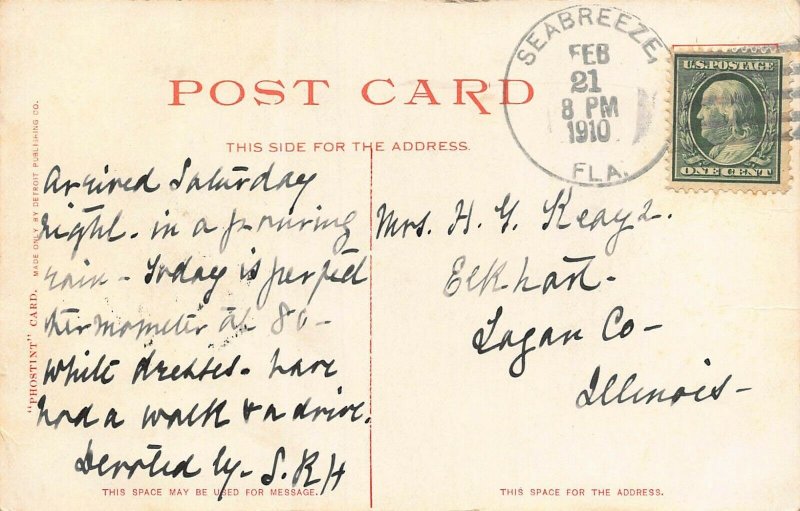 POST CARD
THIS SIDE FOR THE ADDRESS.
SEABREEZE,
FEB
21
8 PM
1910
FLA.
U.S. POSTAGE
ONE CENT
"PHOSTINT" CARD. MADE ONLY BY DETROIT PUBLISHING CO.
Arrived Saturday
night - in a pouring
rain - Today is perfect
thermometer at 80 -
White dresses - have
had a walk & a drive.
Devotedly - S. R. H
THIS SPACE MAY BE USED FOR MESSAGE.
Mrs. H. G.
Elkhart -
Logan Co -
Illinois -
THIS SPACE FOR THE ADDRESS.